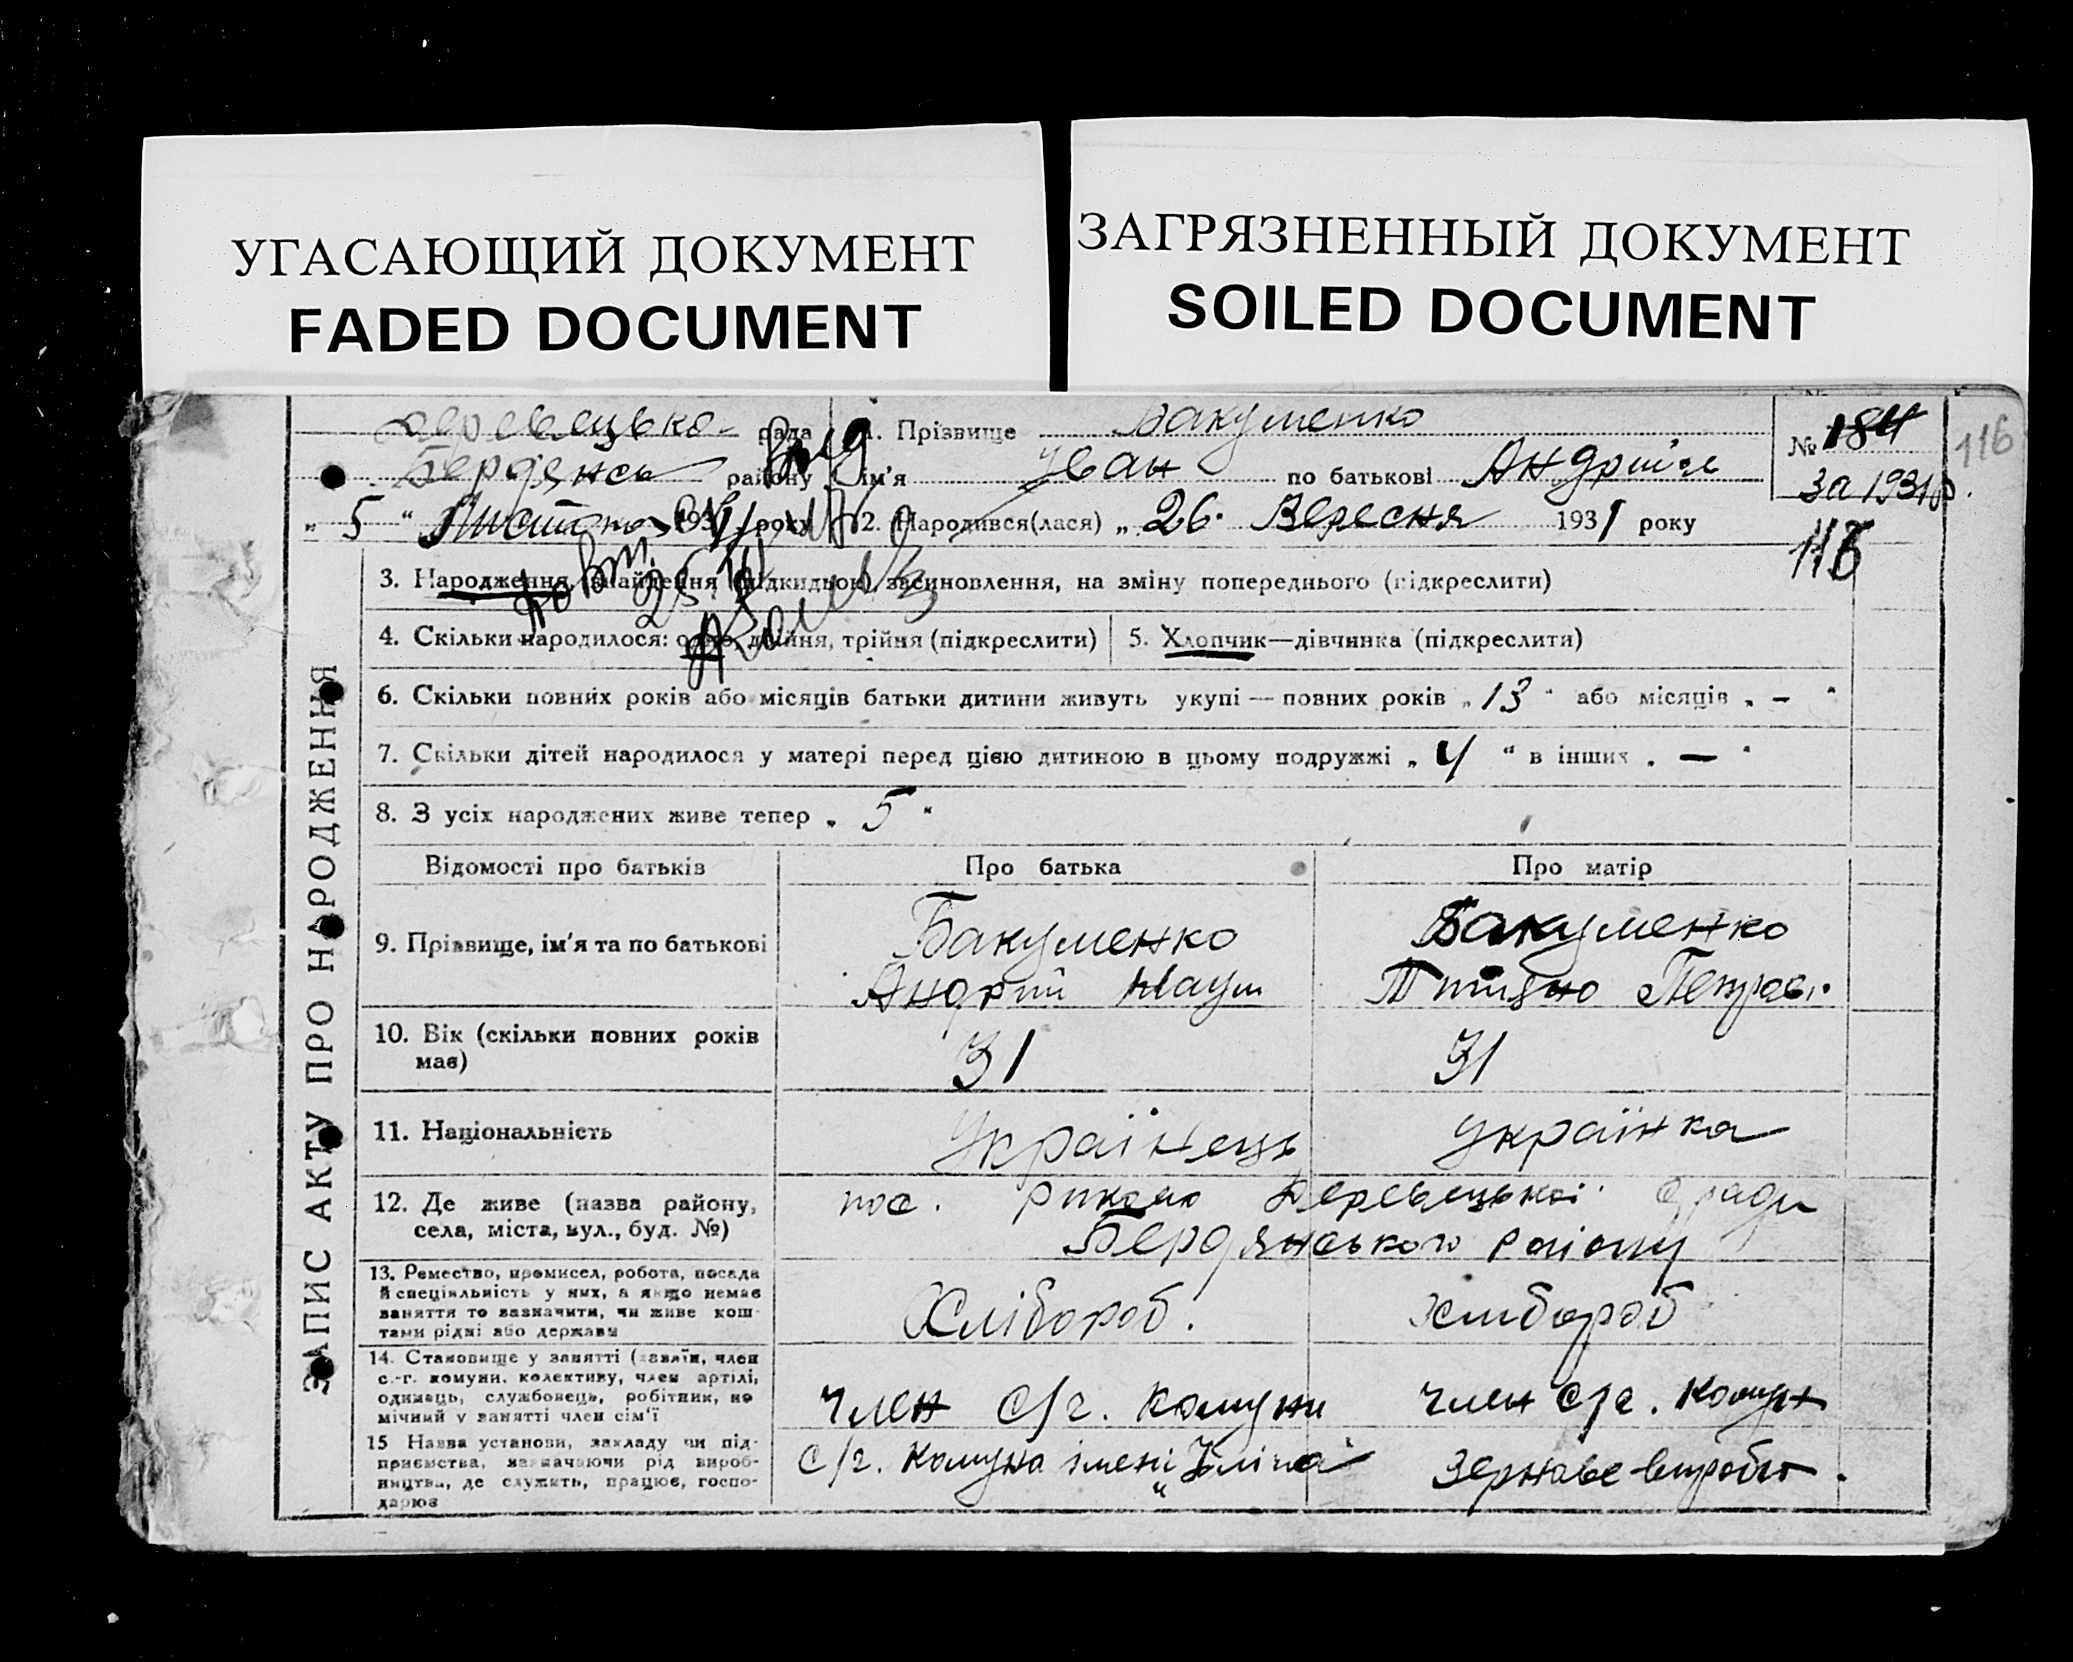 УГАСАЮЩИЙ ДОКУМЕНТ
FADED DOCUMENT
ЗАГРЯЗНЕННЫЙ ДОКУМЕНТ
SOILED DOCUMENT
рада
району
„ 5 “ 1931 року
1. Прізвище Бакуменко
ім'я Іван по батькові
2. Народився(лася) „ 26. Вересня 1931 року
№ 184
за 1931 р.
116
116
ЗАПИС АКТУ ПРО НАРОДЖЕННЯ
3. Народження, знайдення підкидьою, засиновлення, на зміну попереднього (підкреслити)
4. Скільки народилося: одно, двійня, трійня (підкреслити)
5. Хлопчик—дівчинка (підкреслити)
6. Скільки повних років або місяців батьки дитини живуть укупі — повних років „ 13 “ або місяців „ – “
7. Скільки дітей народилося у матері перед цією дитиною в цьому подружжі „ 4 “ в інших „ — “
8. З усіх народжених живе тепер „ 5 “
Відомості про батьків
Про батька
Про матір
9. Прізвище, ім'я та по батькові
Бакуменко
Андрій Наум
Бакуменко
10. Вік (скільки повних років
має)
31
31
11. Національність
Українець
Українка
12. Де живе (назва району,
села, міста, вул., буд. №)
пос. с/ради
Бердянського району
13. Ремество, промисел, робота, посада
й спеціяльність у них, а якщо немає
заняття то зазначити, чи живе кош-
тами рідні або держави
Хлібороб.
хлібороб
14. Становище у занятті (хазяїн, член
с.-г. комуни, колективу, член артілі,
одинець, службовець, робітник, по-
мічний у занятті член сім'ї
Член с/г. комуни
член с/г. комун
15 Назва установи, закладу чи під-
приємства, зазначаючи рід вироб-
ництва, де служить, працює, госпо-
дарює
с/г. Комуна імені